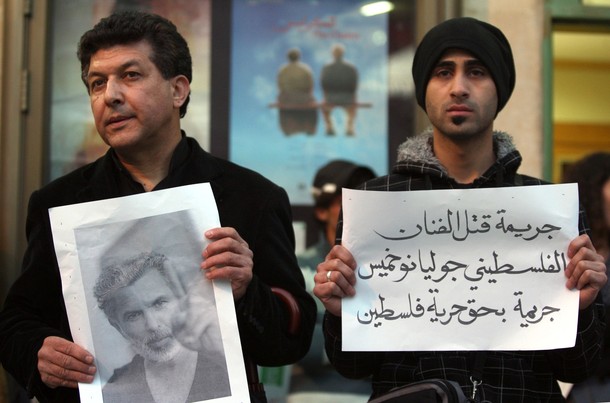 جريمة قتل الفنان
الفلسطيني جوليانو خميس
جريمة بحق حرية فلسطين